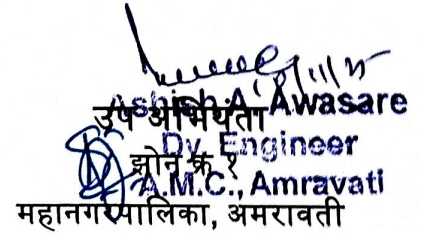 Ashish A. Awasare
उप अभियंता
Dy. Engineer
झोन क्र १
A.M.C., Amravati
महानगरपालिका, अमरावती